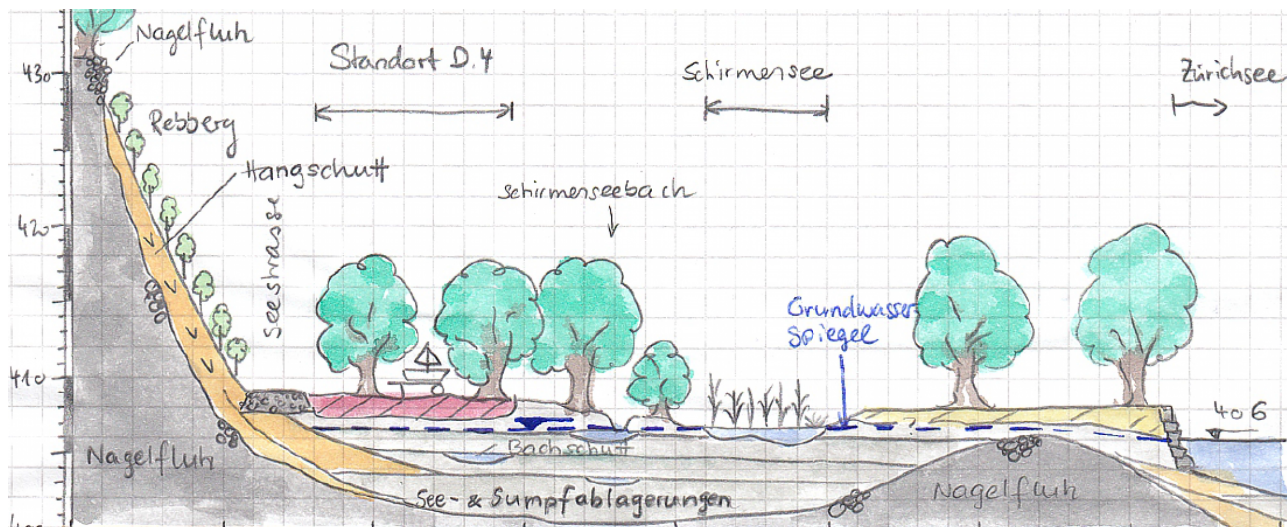 Nagelfluh
430
Standort D.4
Schirmensee
Zürichsee
Rebberg
Hangschutt
Schirmenseebach
420
Seestrasse
Grundwasser
Spiegel
410
406
Bachschutt
Nagelfluh
See- & Sumpfablagerungen
Nagelfluh